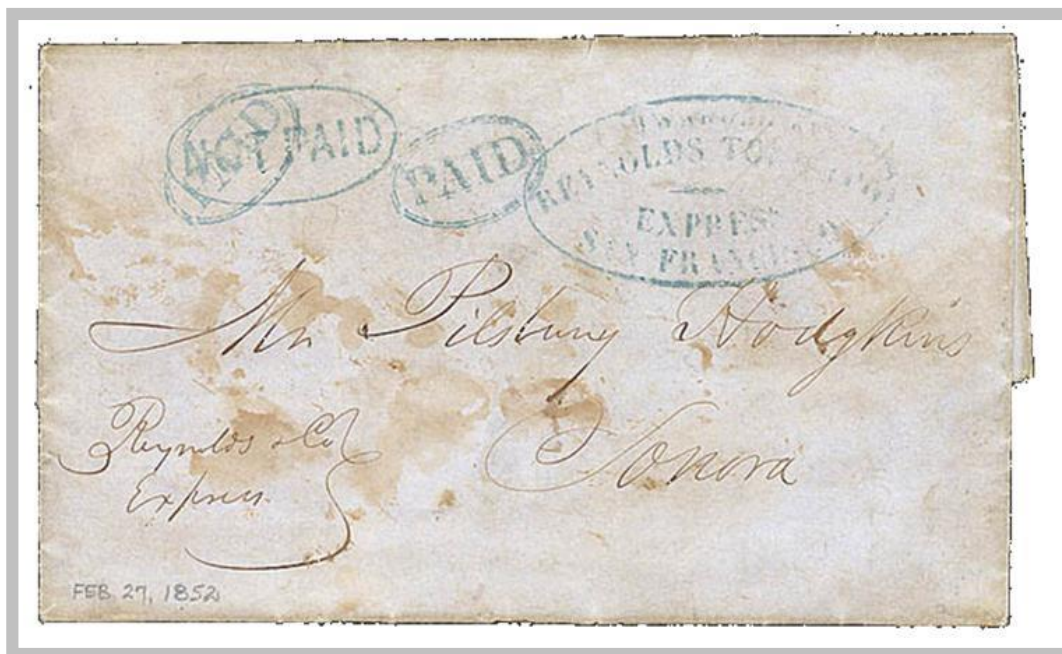 NOT PAID
PAID
REYNOLDS
EXPRESS
SAN FRANCISCO
Mr Pilsbury Hodgkins
Sonora
Reynolds & Co
Express
FEB. 27, 1852